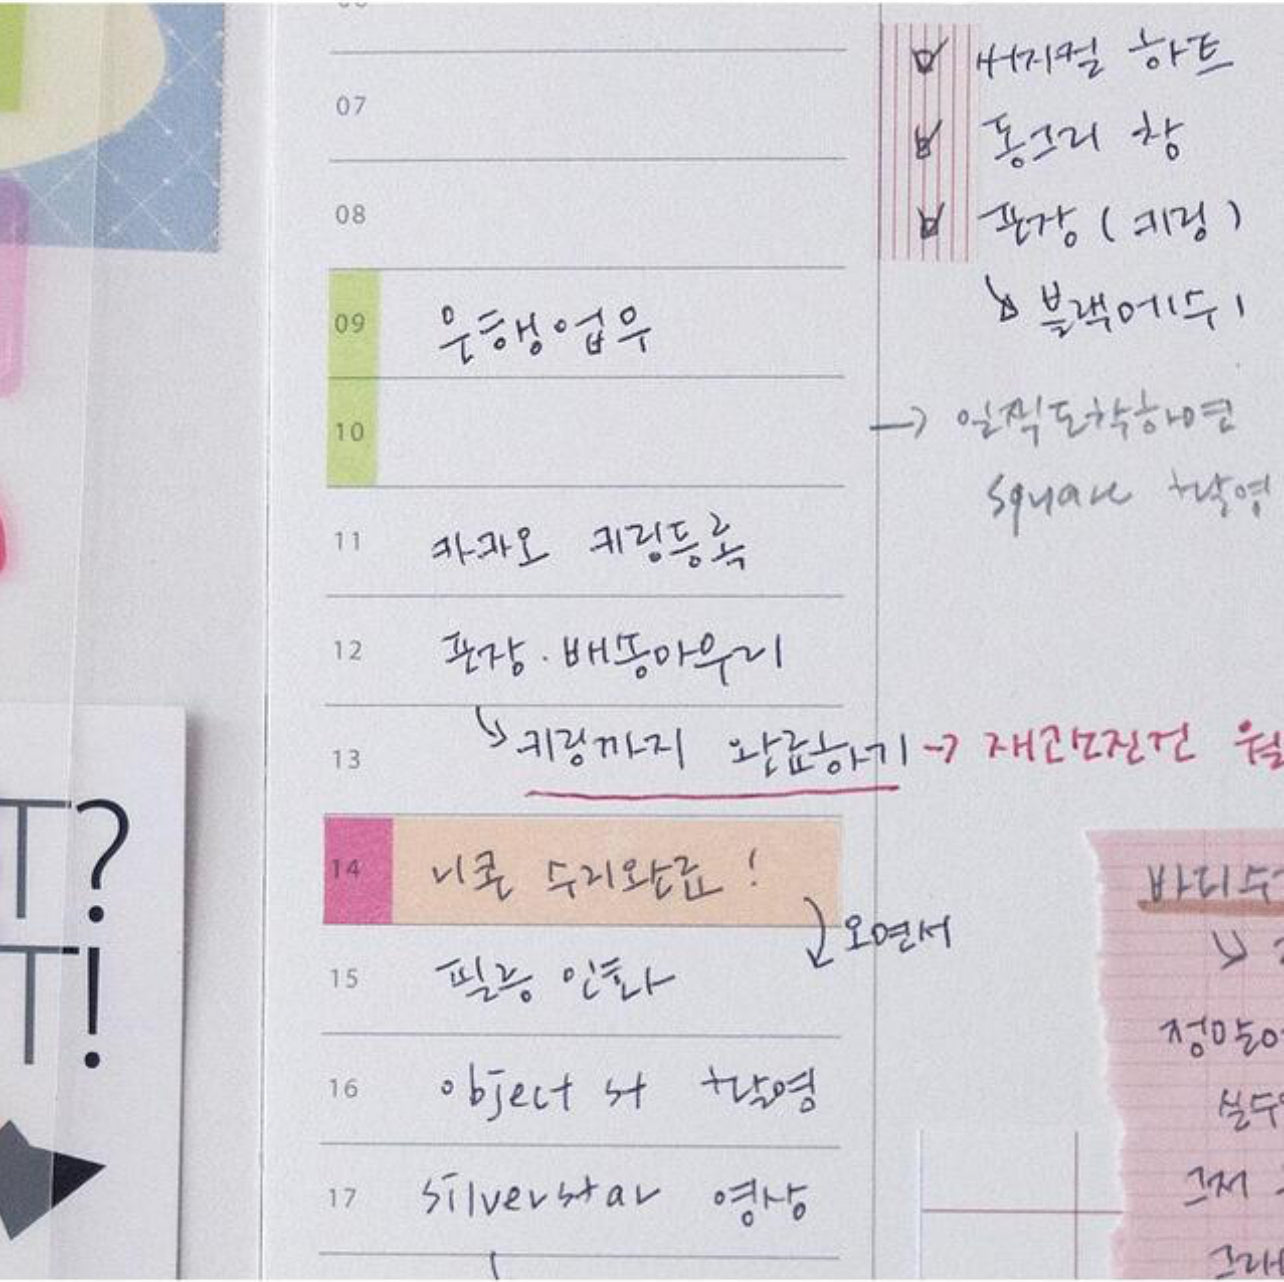 07
08
09 은행업무
10
11 카카오 키링등록
12 포장·배송마무리
↳ 키링까지 완료하기 → 재관건건 월
13
14 니콘 수리완료!
오면서
15 필름 인화
16 object st 촬영
17 silverstar 영상
써지컬 하트
동그리 창
포장 (키링)
↳ 블랙에수이
→ 일찍도착하면
square 촬영
T?
T!
바리수
정말
실수
그저
그래